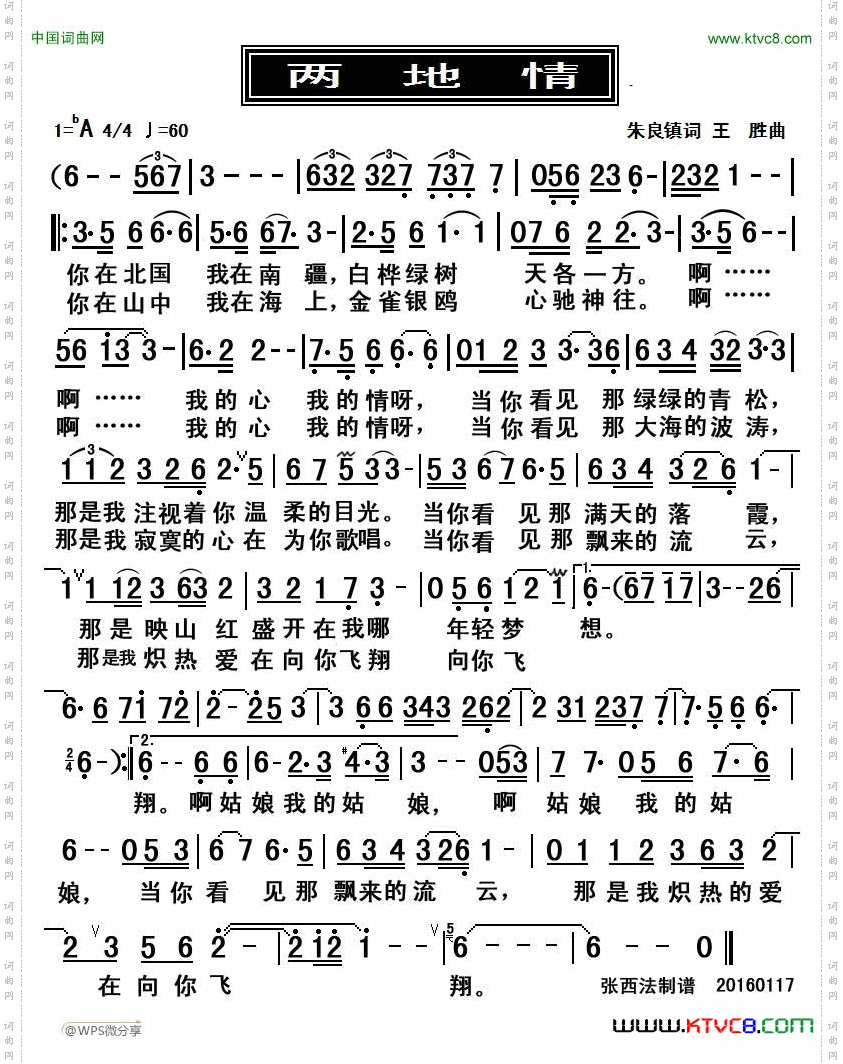 中国词曲网 www.ktvc8.com
两 地 情
1=ᵇA 4/4 ♩=60 朱良镇词 王 胜曲
(6 - - 567 | 3 - - - | 632 327 737 7 | 056 23 6 - | 232 1 - -
3·5 6 6·6 | 5·6 67· 3 - | 2·5 6 1· 1 | 076 2 2·3 - | 3·56 - - |
你在北国 我在南 疆，白桦绿树 天各一方。 啊……
你在山中 我在海 上，金雀银鸥 心驰神往。 啊……
56 13 3 - | 6·2 2 - - | 7·5 6 6·6 | 012 3 3·36 | 634 32 3·3 |
啊…… 我的心 我的情呀， 当你看见 那绿绿的青松，
啊…… 我的心 我的情呀， 当你看见 那大海的波涛，
3
112 326 2· 5 | 67 5 33 - | 536 76· 5 | 634 326 1 - |
那是我注视着你温 柔的目光。当你看 见那满天的落 霞，
那是我寂寞的心在 为你歌唱。当你看 见那飘来的流 云，
1 112 363 2 | 32 17 3 - | 056 12 1 | 1. 6 - (67 17 | 3 - - 26 |
那是映山红盛开在我哪 年轻梦 想。
那是我炽热爱在向你飞翔 向你飞
6·6 71 72 | 2 - 253 | 3 66 343 262 | 2 31 237 7 | 7·5 6 6·
2/4 6 - ) :| 2. 6 - - 66 | 6 - 2·3 #4·3 | 3 - - 053 | 7 7· 056 7·6
翔。啊姑娘我的姑 娘， 啊 姑娘 我的姑
6 - - 053 | 67 6·5 | 634 326 1 - | 01 12 363 2 |
娘， 当你看 见那飘来的流 云， 那是我炽热的爱
2 3 56 2· | 2 - 212 | 1 - - 5 | 6 - - - | 6 - - 0 ‖
在向你飞 翔。 张西法制谱 20160117
@WPS微分享 www.KTVC8.com
词曲网